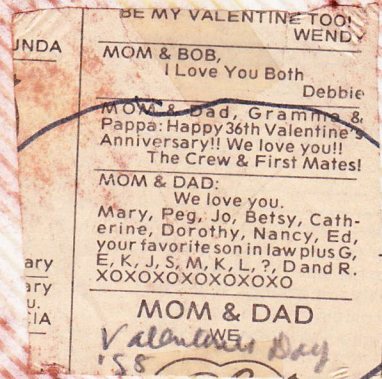 BE MY VALENTINE TOO!
WENDY
UNDA
MOM & BOB,
I Love You Both
Debbie
MOM & Dad, Gramma &
Pappa: Happy 36th Valentine's
Anniversary!! We love you!!
The Crew & First Mates!
MOM & DAD:
We love you.
Mary, Peg, Jo, Betsy, Cath-
erine, Dorothy, Nancy, Ed,
your favorite son in law plus G,
E, K, J, S, M, K, L, ?, D and R.
XOXOXOXOXOXOXO
ary
ary
u.
CIA
MOM & DAD
WE
Valentines Day
'88